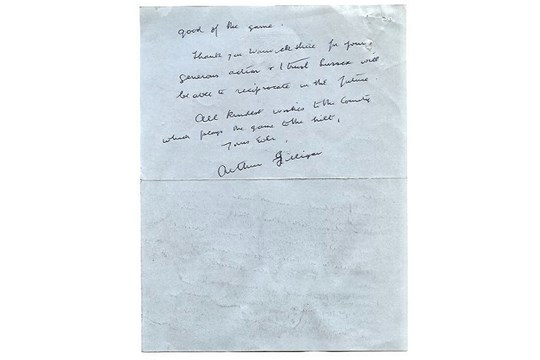 good of the game.
Thank you Warwickshire for your
generous action & I trust Sussex will
be able to reciprocate in the future.
All kindest wishes to the County
which plays the game to the hilt,
Yours Ever,
Arthur Gilligan